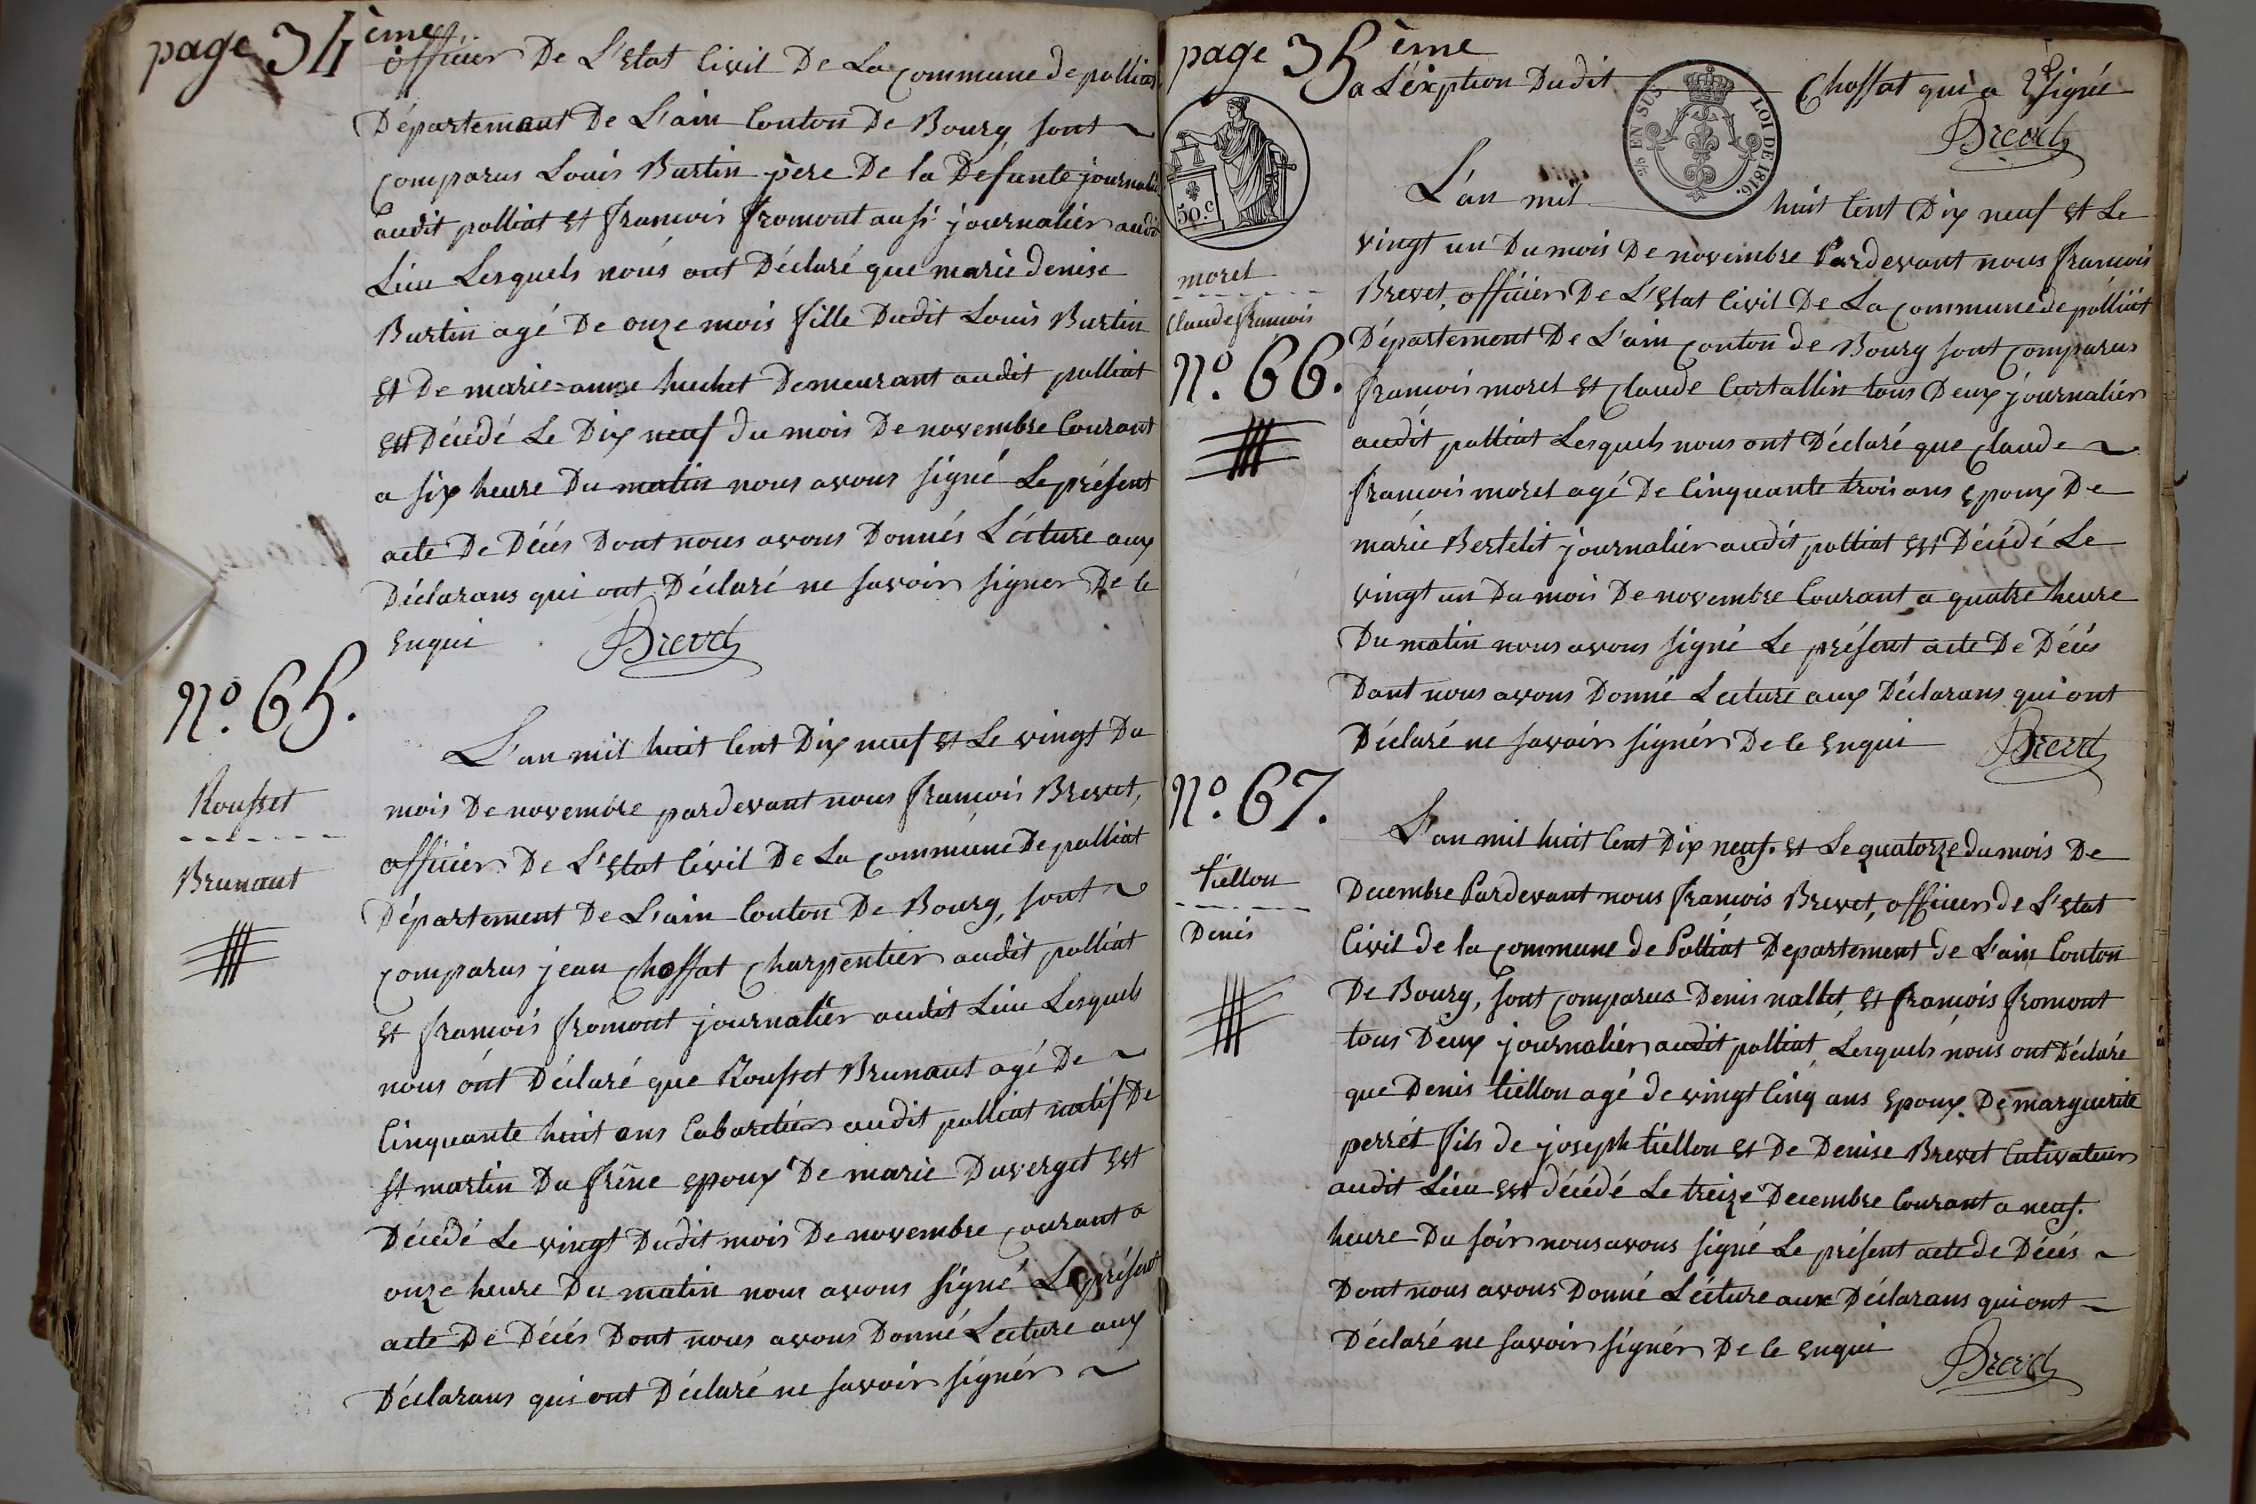 page 34 ème
officier De L'Etat Civil De La commune de polliat
Département De L'ain Conton De Bourg sont ~
comparus Louis Burtin père De la Défunte journalier
audit polliat Et francois fromont aussi journalier audit
Lieu Lesquels nous ont Déclaré que marie denise
Burtin agé De onze mois fille Dudit Louis Burtin
Et De marie=anne huchet Demeurant audit polliat
Est Décédé Le Dix neuf du mois De novembre Courant
a six heure Du matin nous avons signé Le présent
acte De Décés Dont nous avons Donnés Lécture aux
Déclarans qui ont Déclaré ne savoir signer De Ce
Enqui Brevet
N.º 65.
Rousset
Brunaut
L'an mil huit Cent Dix neuf Et Le vingt Du
mois De novembre pardevant nous francois Brevet,
officier De L'Etat Civil De La commune De polliat
Département De L'ain Conton De Bourg, sont ~
comparus jean Chossat Charpentier audit polliat
Et francois fromont journalier audit Lieu Lesquels
nous ont Déclaré que Rousset Brunaut agé De ~
Cinquante huit ans Cabaretier audit polliat natif De
St martin Du frêne epoux De marie Duverget Est
Décédé Le vingt Dudit mois De novembre courant a
onze heure Du matin nous avons signé Le présent
acte De Décés Dont nous avons Donné Lecture aux
Déclarans qui ont Déclaré ne savoir signér ~
page 35 ème
a Léxption Dudit Chossat qui a signé
Brevet
50.c
EN SUS
LOI DE 1816.
L'an mil huit Cent Dix neuf Et Le
vingt un Du mois De novembre Pardevant nous francois
Brevet, officier De L'Etat Civil De La commune de polliat
Département De L'ain conton de Bourg sont comparus
francois morel Et Claude Curtallin tous Deux journalier
audit polliat Lesquels nous ont Déclaré que Claude ~
francois morel agé De Cinquante trois ans Epoux De
marie Bertelit journalier audit polliat Est Décédé Le
vingt un Du mois De novembre Courant a quatre heure
Du matin nous avons signé Le présent acte De Décés
Dont nous avons Donné Lecture aux Déclarans qui ont
Déclaré ne savoir signér De Ce Enqui Brevet
morel
Claude francois
N.º 66.
N.º 67.
tiellon
Denis
L'an mil huit Cent Dix neuf. Et Le quatorze du mois De
Decembre Pardevant nous francois Brevet, officier de L'Etat
Civil de la commune de Polliat Departement de L'ain Conton
De Bourg, sont comparus Denis nallet, Et francois fromont
tous Deux journalier audit polliat, Lesquels nous ont Déclaré
que Denis tiellon agé de vingt Cinq ans Epoux De marguerite
perrét fils de joseph tiellon Et De Denise Brevet Cutivateur
audit Lieu Est décédé Le treize Decembre Courant a neuf.
heure Du soir nous avons signé Le présent acte de Décés ~
Dont nous avons Donné Lécture aux Déclarans qui ont ~
Déclaré ne savoir signér De Ce Enqui
Brevet